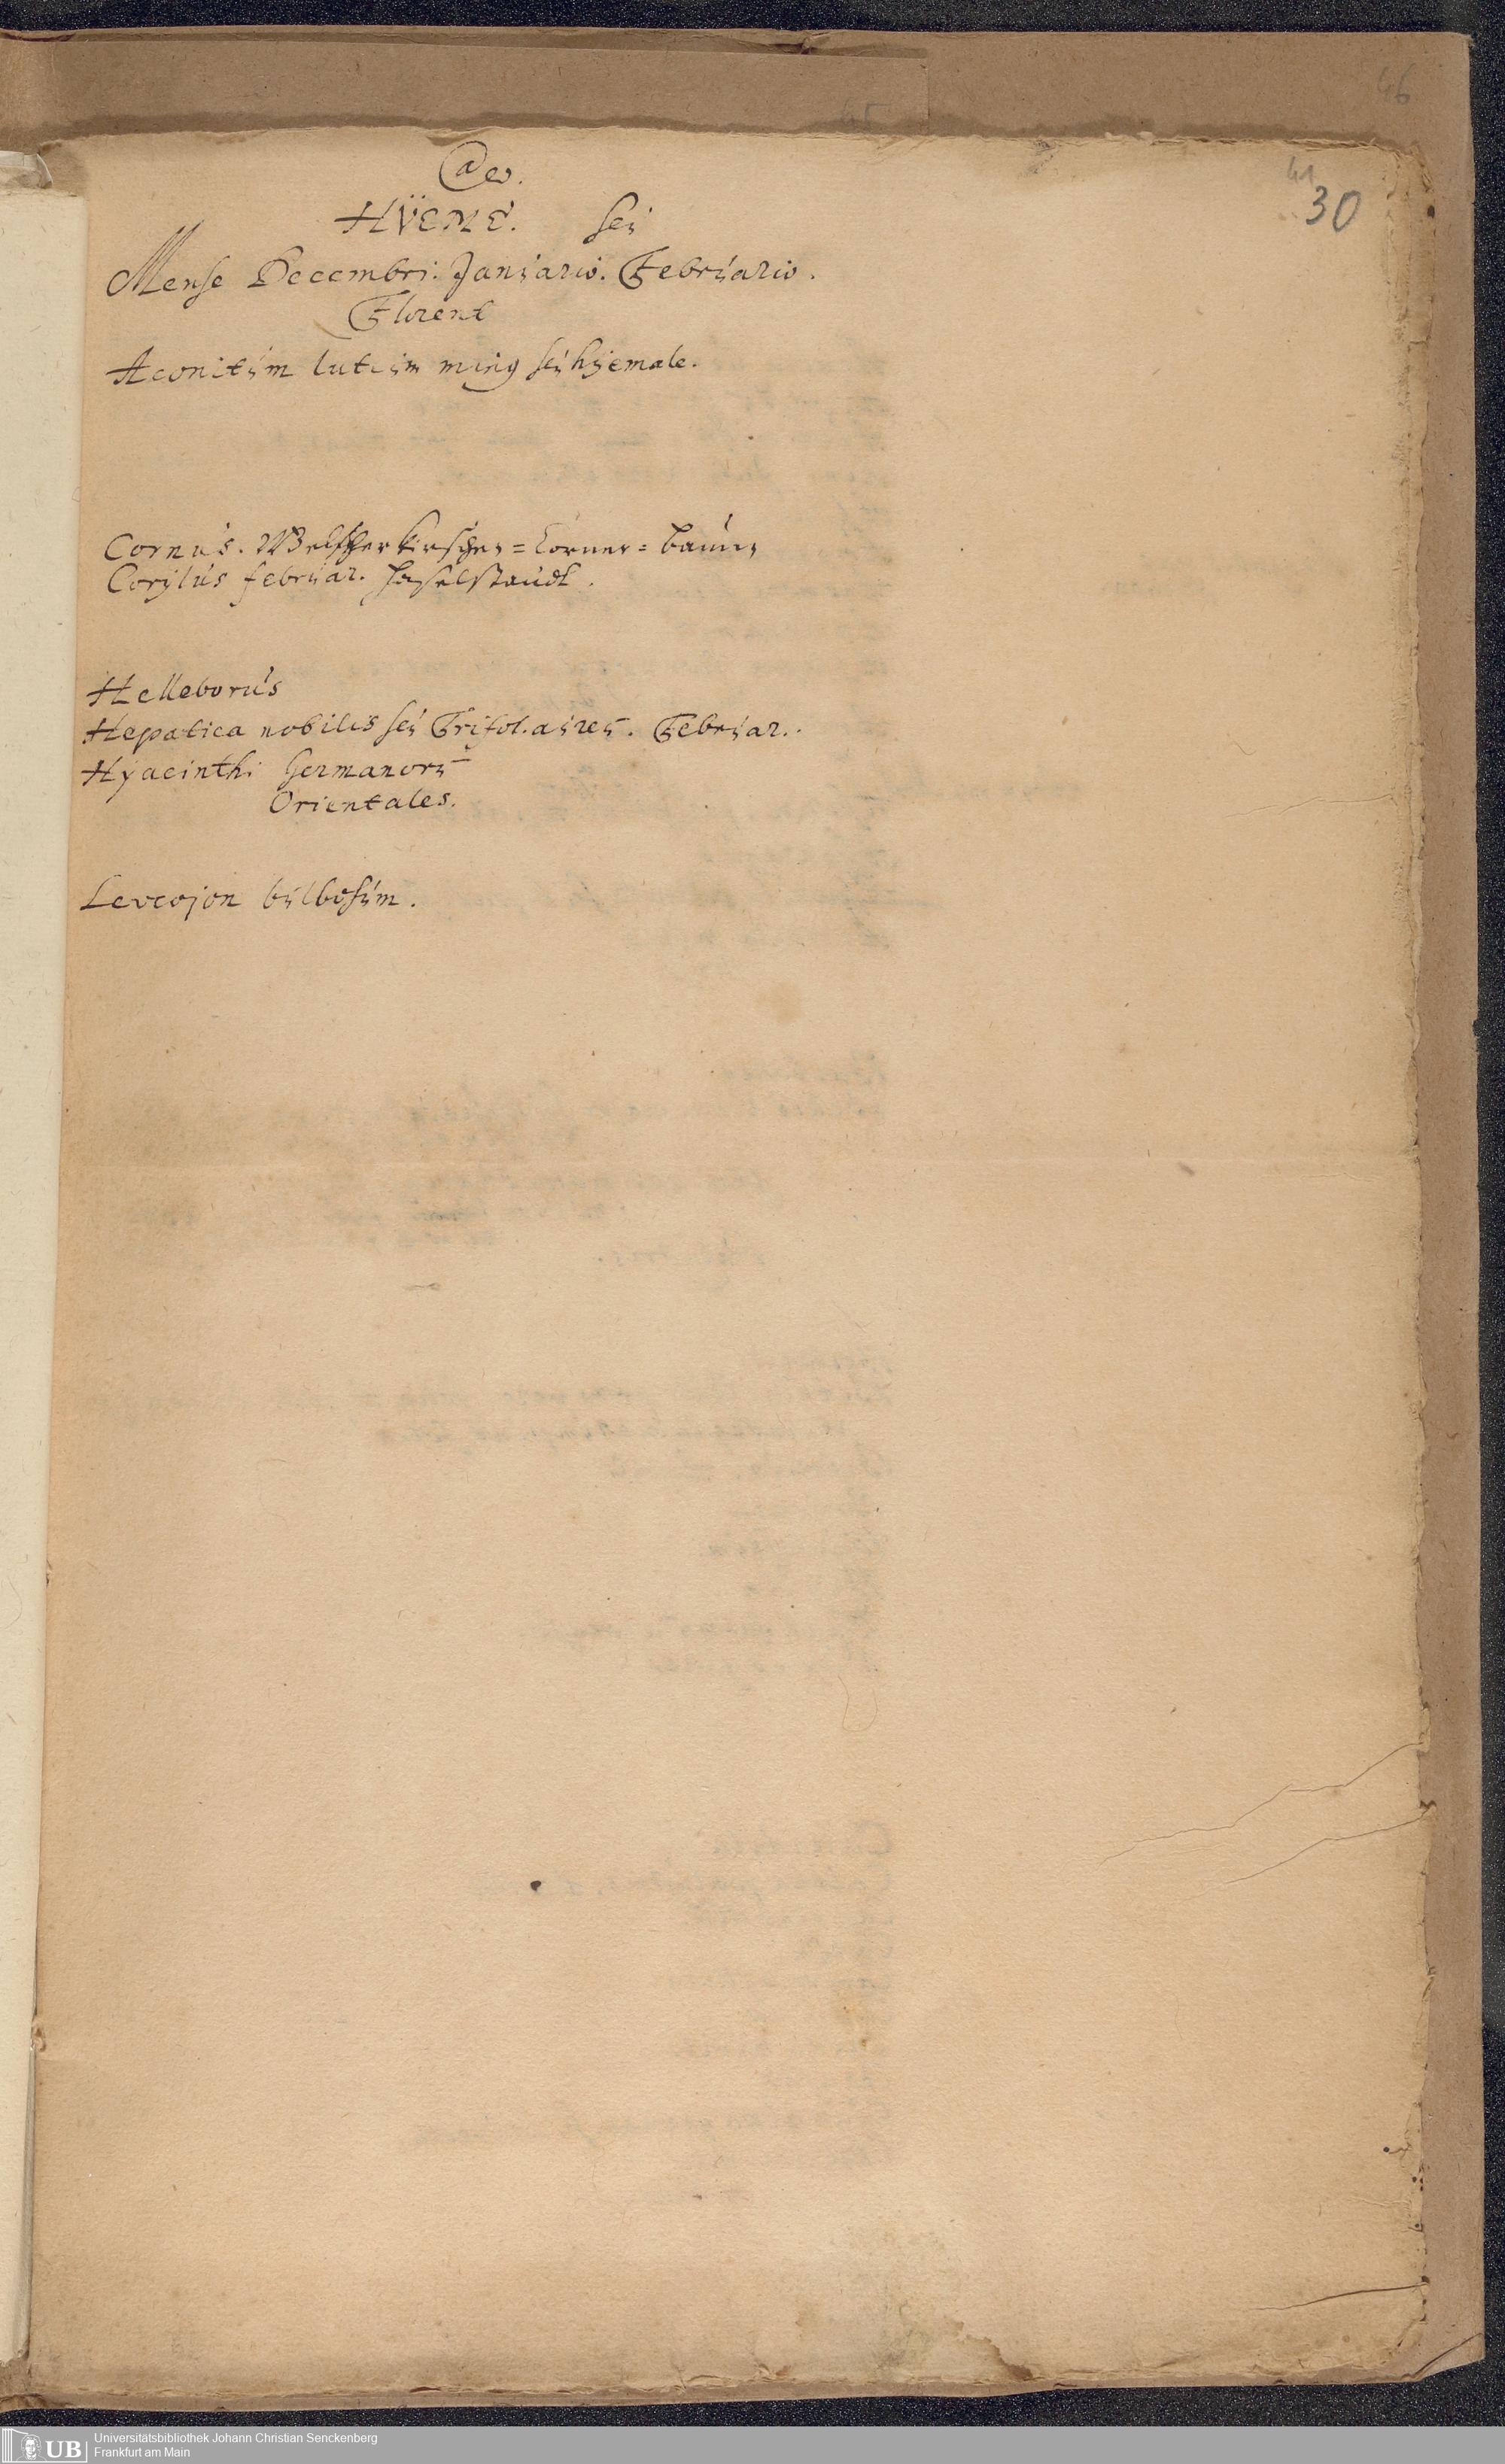 46
41
30
HÿEME. seu
Mense Decembri. Januario. Februario.
Florent
Aconitum luteum minus seu hyemale.
Cornus. Welscher Kirschen=Cörner=baum
Corylus februar. Haselstaude.
Helleborus
Hepatica nobilis seu Trifol. aureū. Februar.
Hyacinthi Germanorū
Orientales.
Leucojon bulbosum.
UB
Universitätsbibliothek Johann Christian Senckenberg
Frankfurt am Main